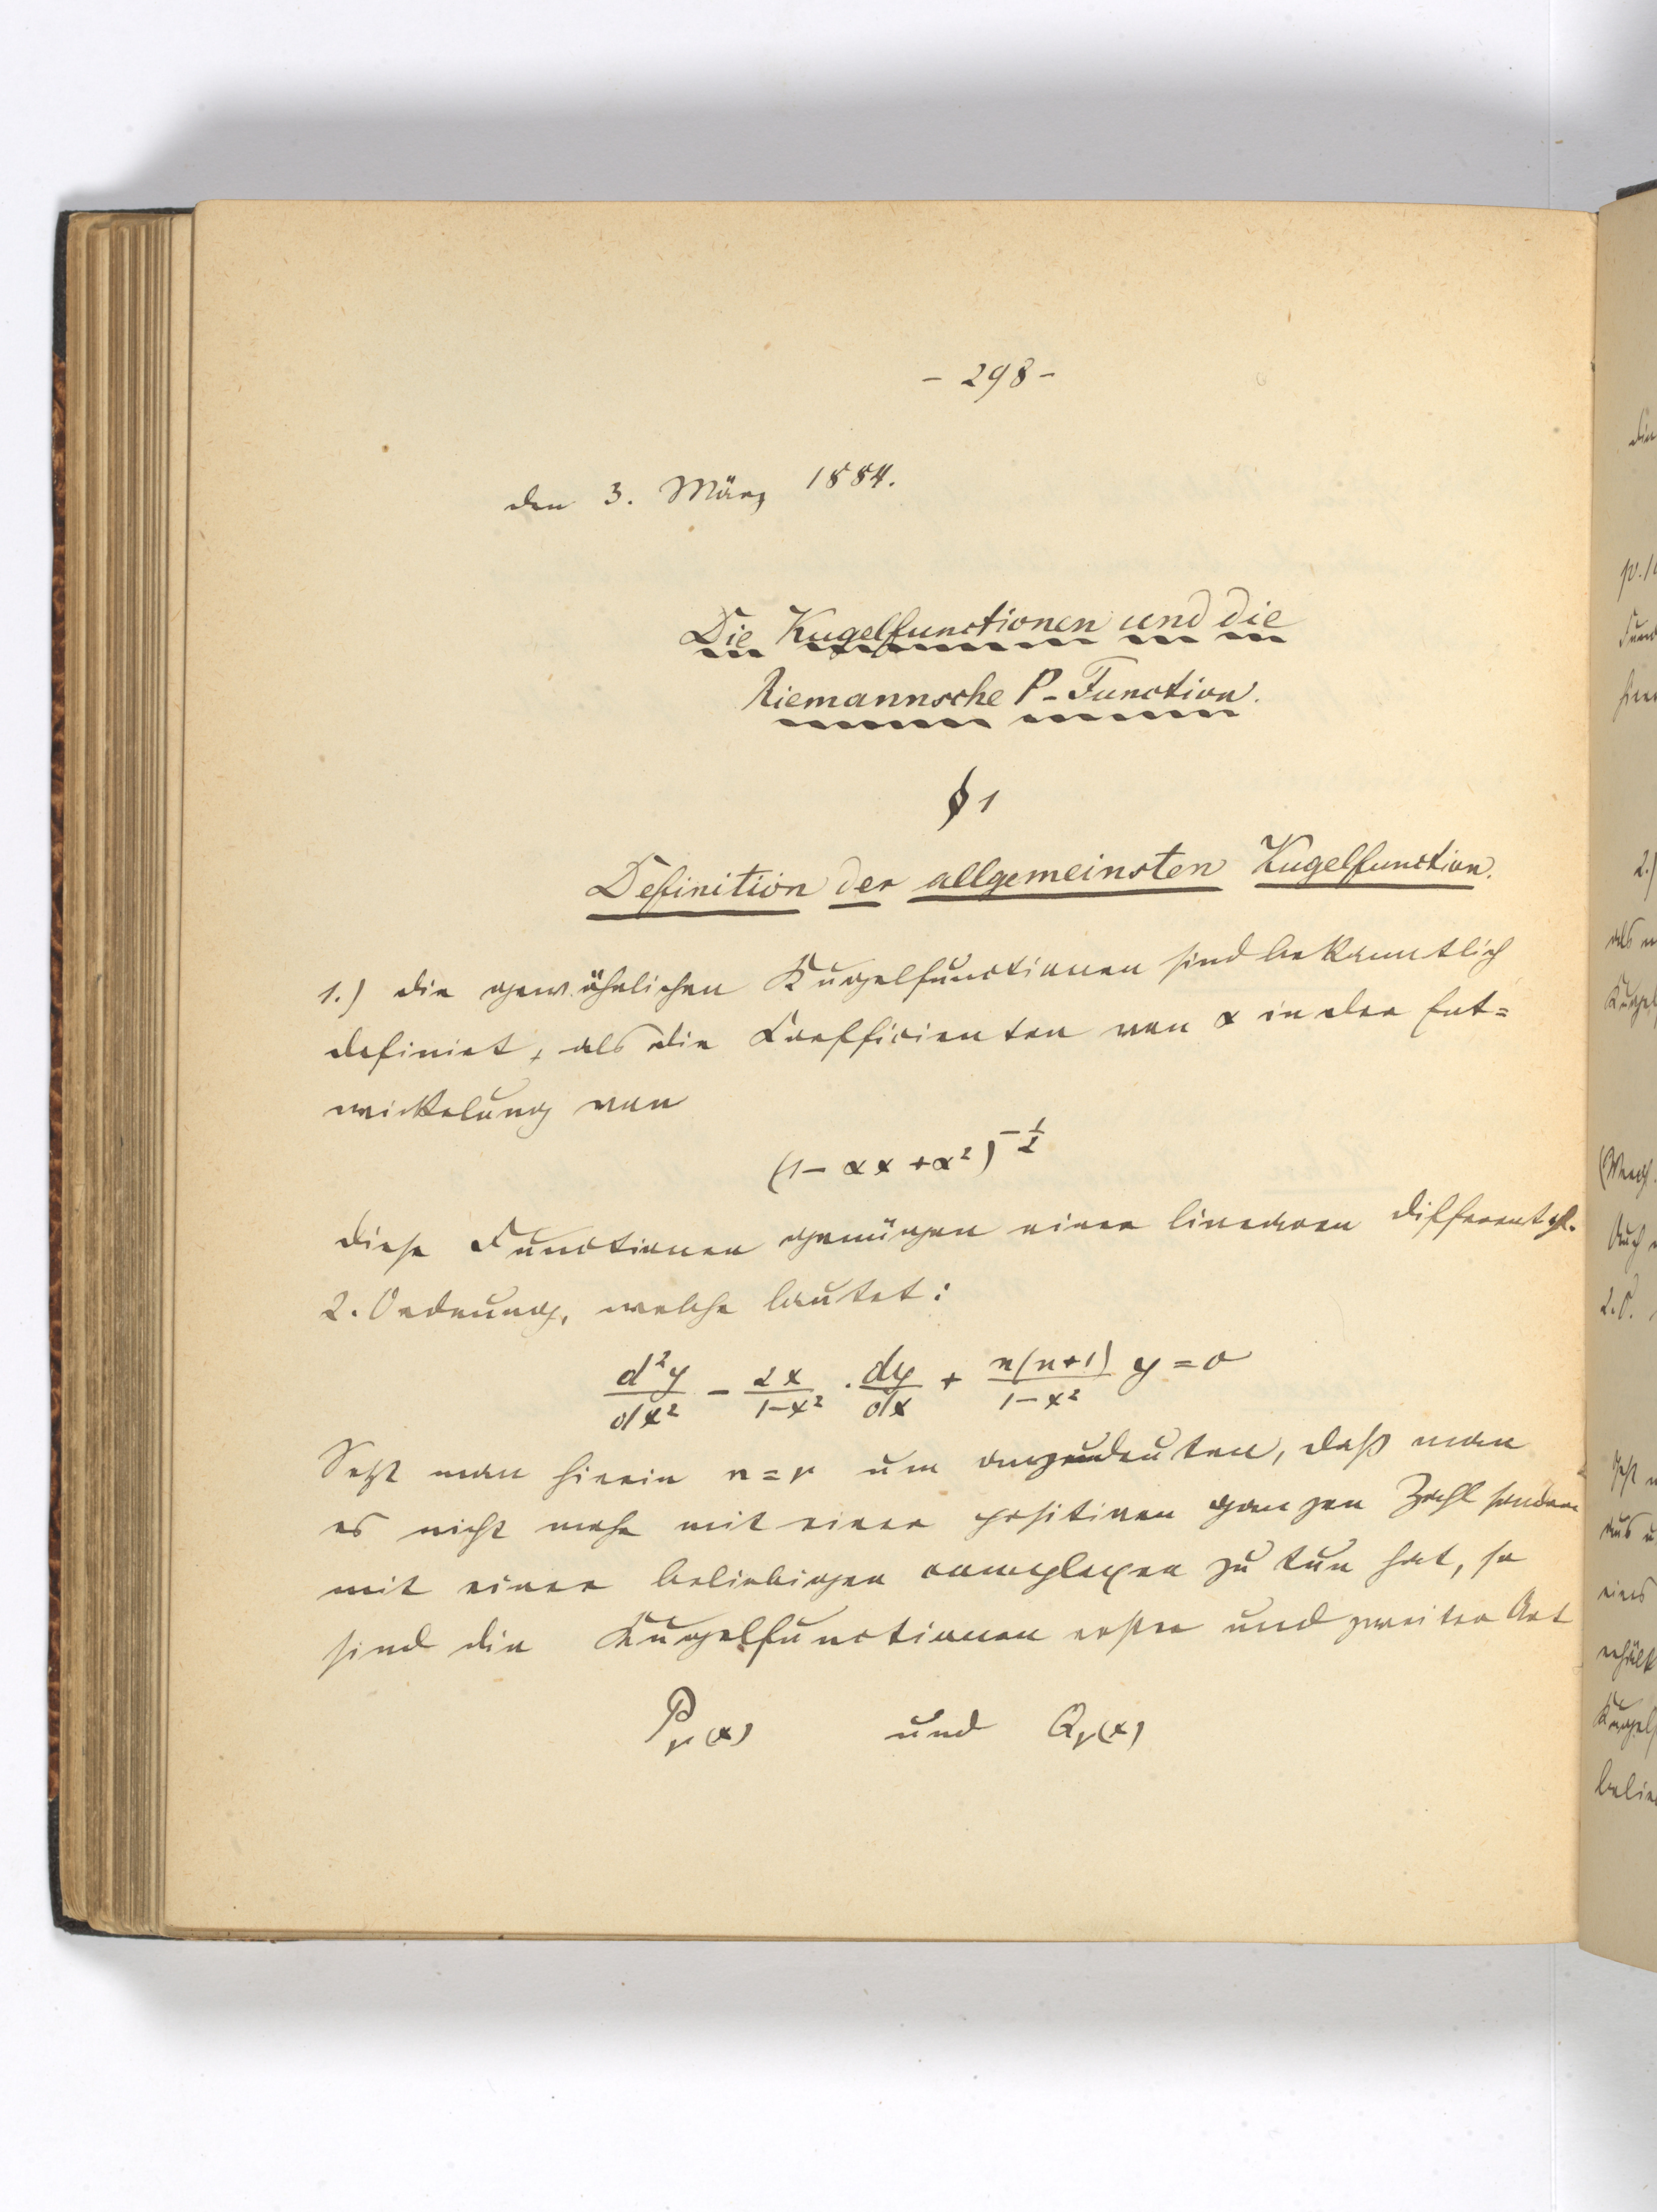 - 298 -
den 3. März 1884.
Die Kugelfunctionen und die
Riemannsche P-Function.
§ 1
Definition der allgemeinsten Kugelfunction.
1.) die gewöhnlichen Kugelfunctionen sind bekanntlich
definirt, als die Coefficienten von α in der Ent=
wickelung von
(1 - αx + α²)^{-1/2}
diese Functionen genügen einer linearen Differentgl.
2. Ordnung, welche lautet:
d²y/dx² - 2x/(1-x²) · dy/dx + n(n+1)/(1-x²) y = 0
Setzt man hierin n = ν um anzudeuten, daß man
es nicht mehr mit einer positiven ganzen Zahl sondern
mit einer beliebigen complexen zu tun hat, so
sind die Kugelfunctionen erster und zweiter Art
P_ν(x) und Q_ν(x)